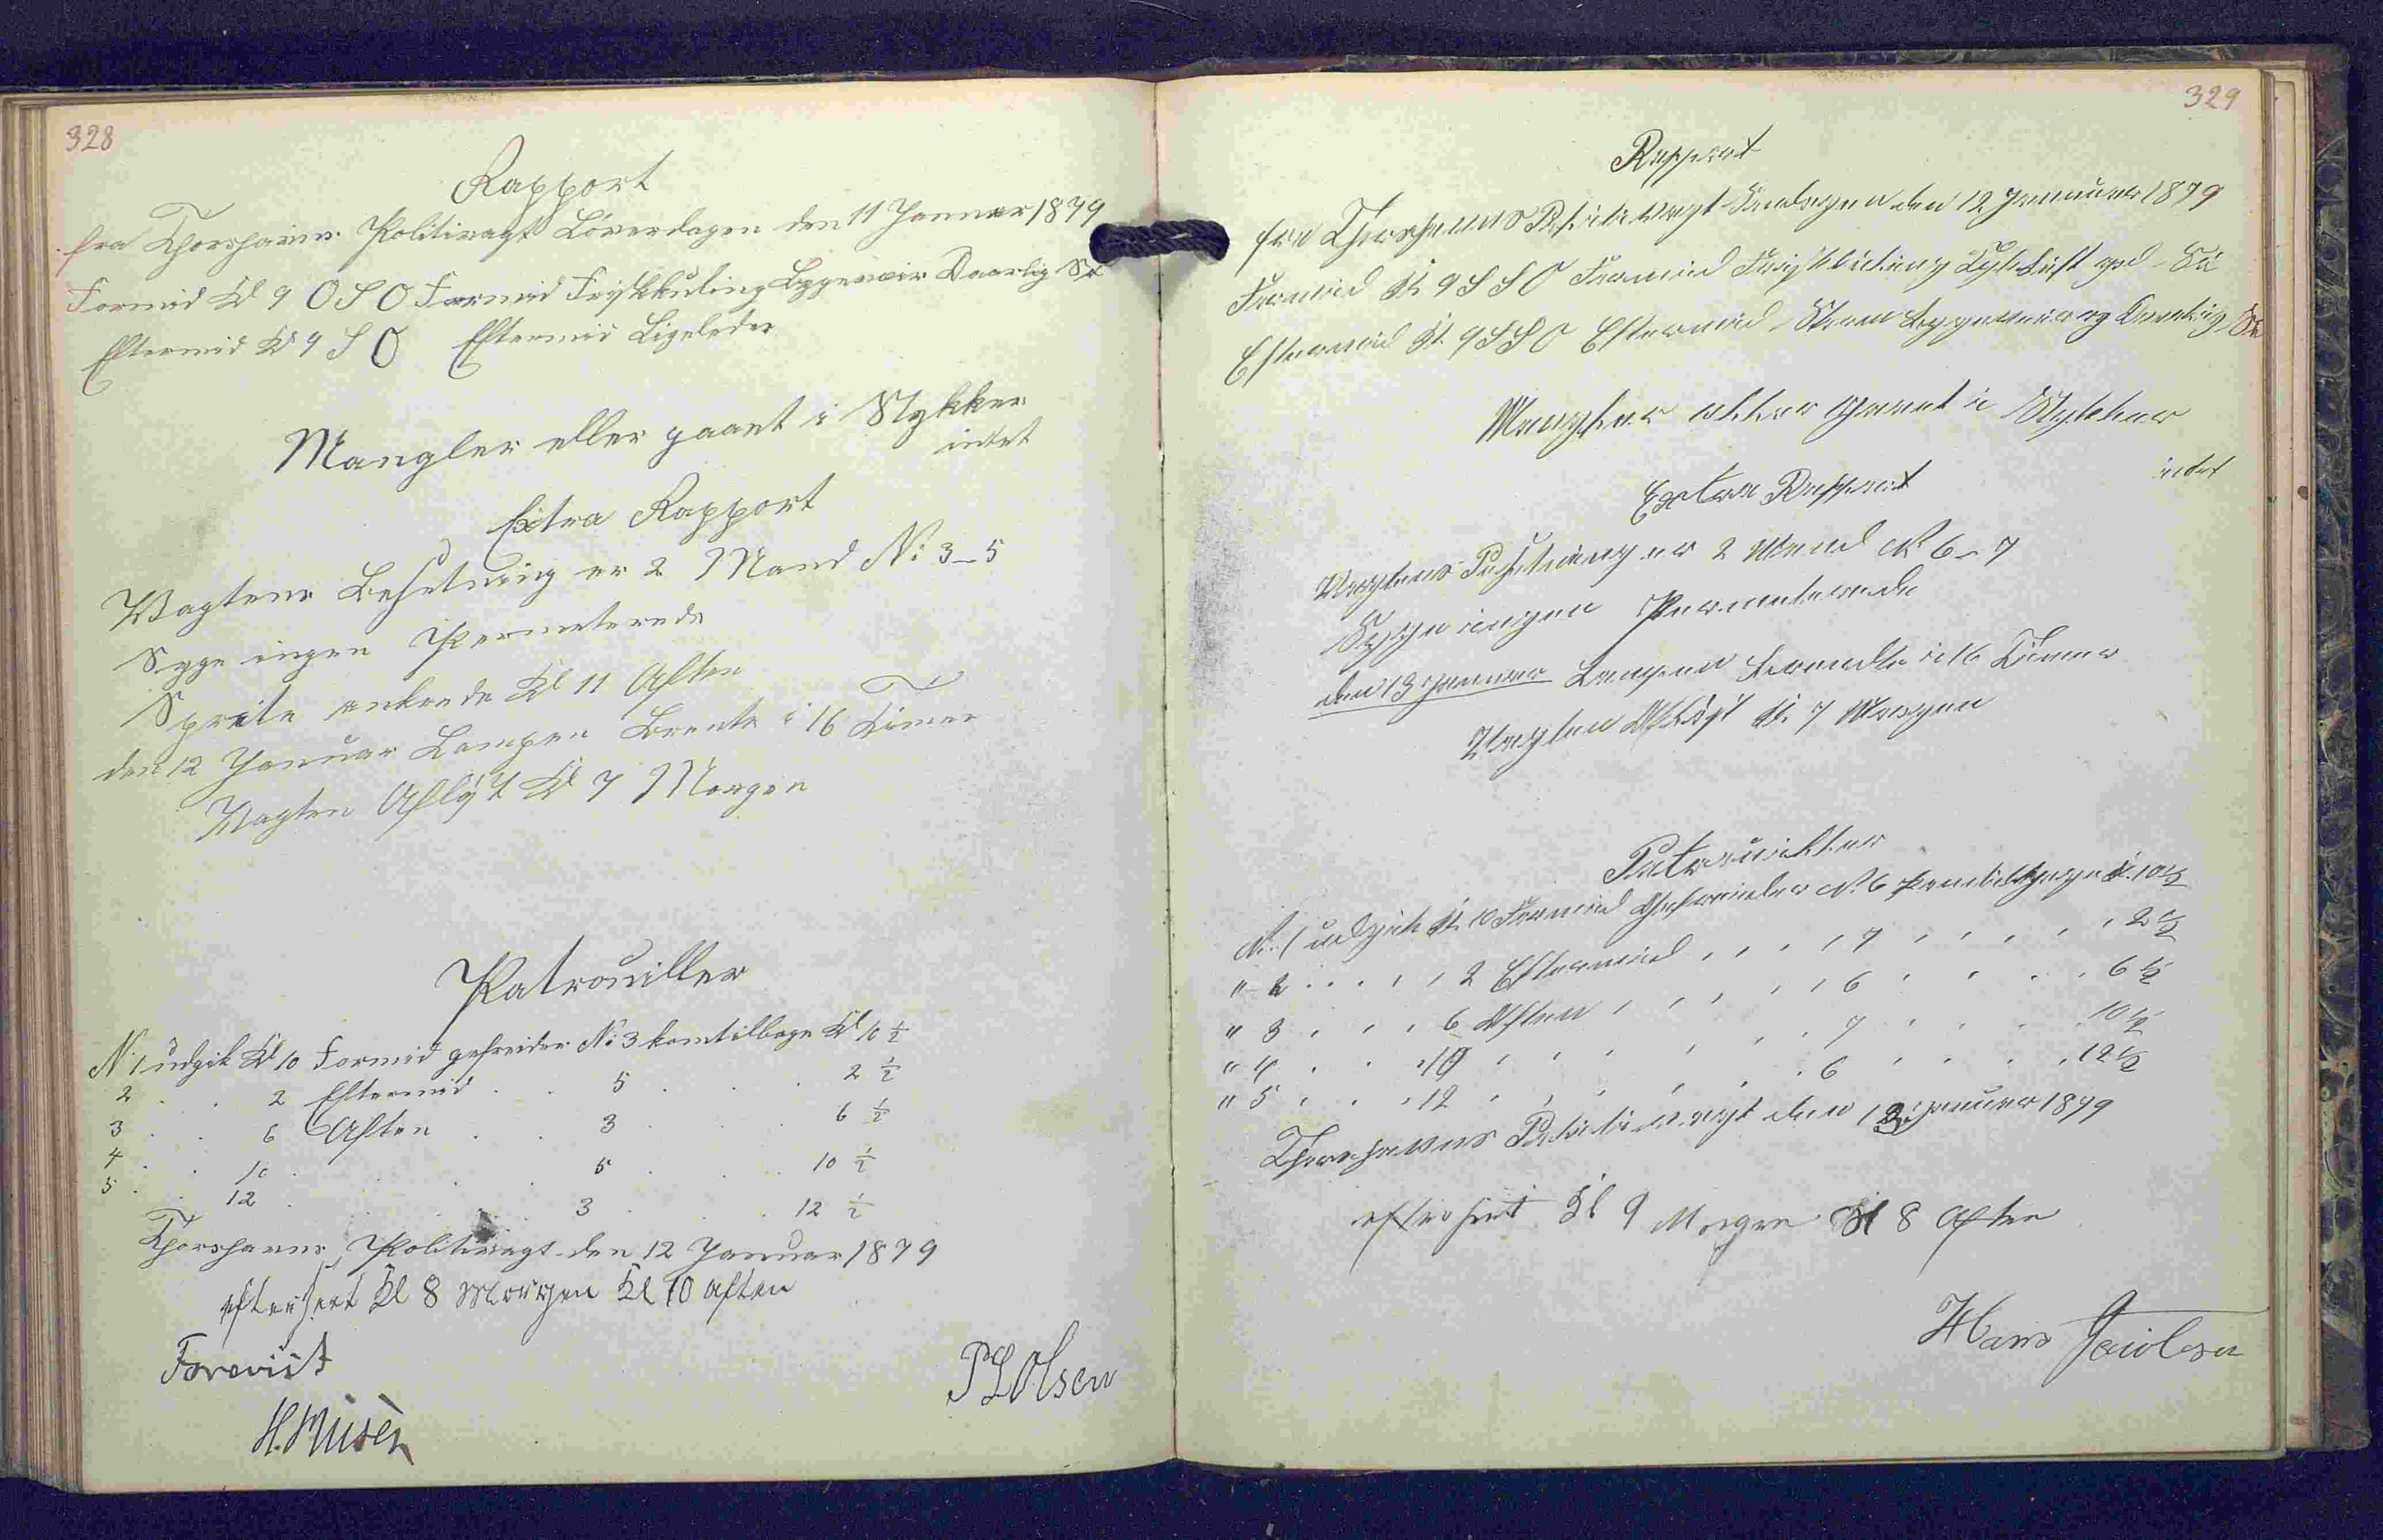 328
Rapport
fra Thorshavns Politivagt Löverdagen den 11 Januar 1879
Formid Kl 9 O S O Formid Friskkuling Byggeveir Daarlig Sö
Eftermid Kl 9 S O Eftermid Ligeledes
Mangler eller gaaet i Stykker
intet
Extra Rapport
Vagtens Besetning er 2 Mand No 3–5
Syge ingen Permeterede
Sprite ankrede Kl 11 Aften
den 12 Januar Lampen Brente i 16 Timer
Vagten Aflöst Kl 7 Morgen
Patrouiller
No 1 udgik Kl 10 Formid gefreider No 3 kom tilbage Kl 10 ½
2 . . 2 Eftermid . . 5 . . . 2 ½
3 . . 6 Aften . . 3 . . . 6 ½
4 . . 10 . . . 5 . . . 10 ½
5 . . 12 . . . 3 . . . 12 ½
Thorshavns Politivagt den 12 Januar 1879
efterseet Kl 8 Morgen Kl 10 Aften
Foreviist
P L Olsen
329
Rapport
fra Thorshavns Politivagt Söndagen den 12 Januar 1879
Formid Kl 9 S S O Formid Frisk Kuling Tyk Luft god Sö
Eftermid Kl. 9 S S O Eftermid Storm Byggeveir og Daarlig Sö
Mangler eller gaaet i Stykker
intet
Extra Rapport
Vagtens Besetning er 2 Mand No 6–7
Syge ingen Permeterede
den 13 Januar Lampen brendte i 16 Timer
Vagten Aflöst Kl. 7 Morgen
Patrouiller
No. 1 udgik Kl. 10 Formid Gefreider No. 6 kom tilbage Kl. 10½
" 2 . . . . 2 Eftermid , , , , 7 , , , , , 2½
" 3 , , , 6 Aften , , , , , 6 , , . . 6½
" 4 . . . 10 , , , , , 7 , , . . 10½
" 5 , , , 12 , , , , . 6 , , . . 12½
Thorshavns Politivagt den 13 Januar 1879
efterseet Kl 9 Morgen Kl 8 Aften
Hans Jacobsen